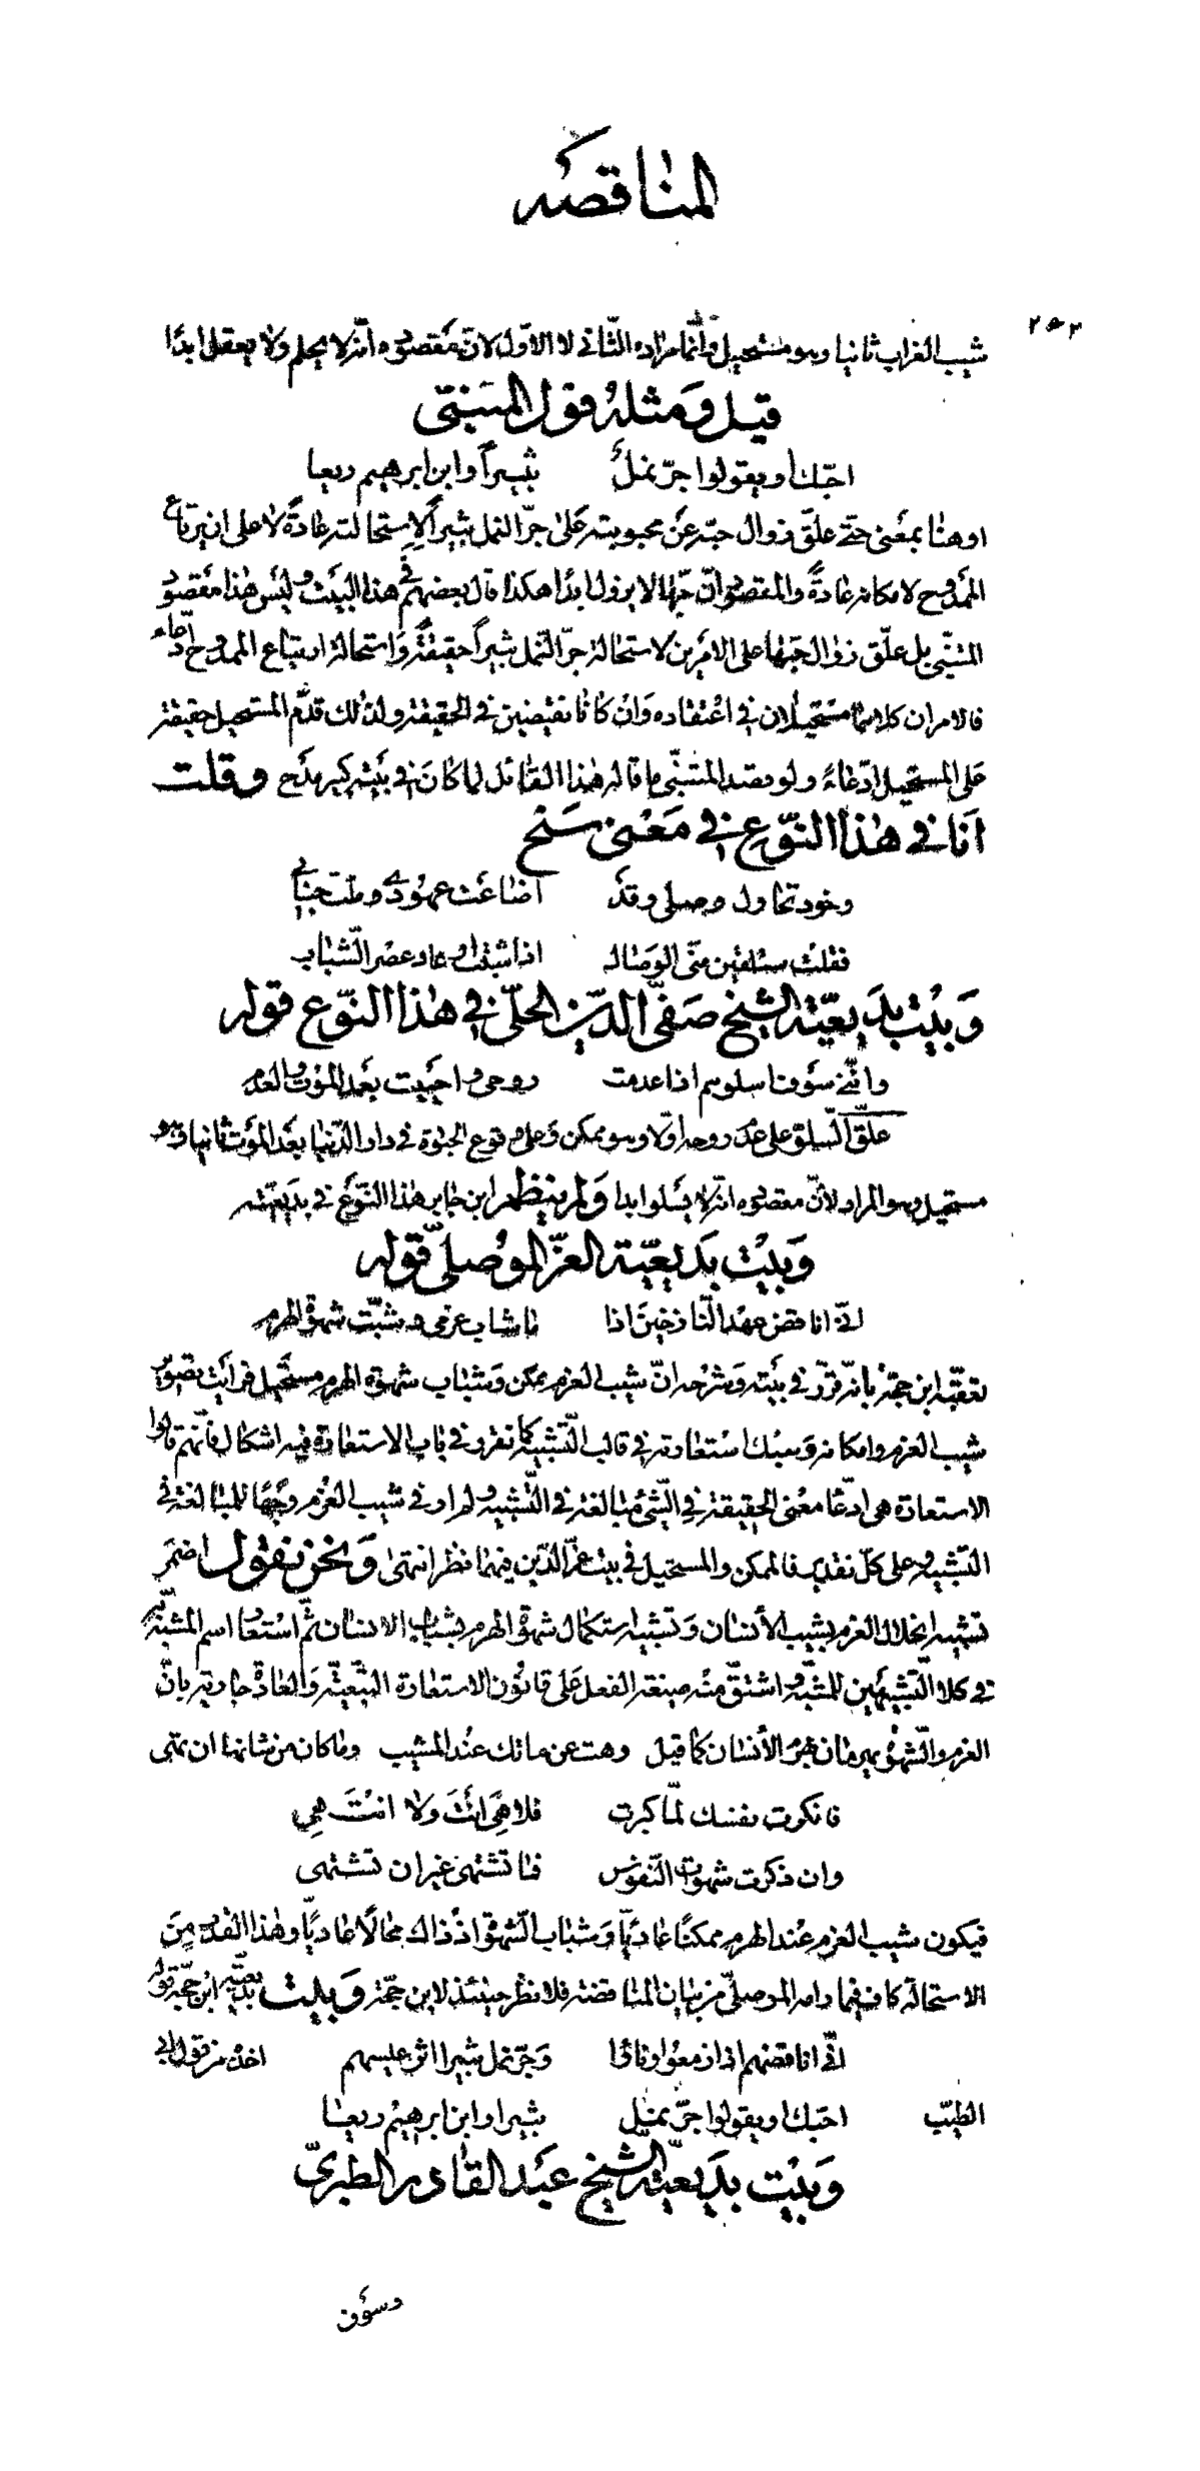 المناقضه
٢٥٣
شيب الغراب ثانيا وهو مستحيل وانّما مراده الثّاني لا الاوّل لانّ مقصوده انّه لا يحلم ولا يعقل ابدًا
قيل ومثله قول المتنبّي
احبّك او يقولوا جرّ نملٌ ثبيراً وابن ابرهيم ريعا
او هنا بمعنى حتى علّق زوال حبّه عن محبوبته على جرّ النمل ثبيراً لاستحالته عادةً لا على ان يرتاع
الممدوح لامكانه عادةً والمقصود انّ حبّها لا يزول ابدًا هكذا قال بعضهم في هذا البيت وليس هذا مقصود
المتنبّي بل علّق زوال حبّها على الامرين لاستحالة جرّ النّمل ثبيراً حقيقةً واستحالة ارتياع الممدوح ادّعاء
فالامران كلاهما مستحيلان في اعتقاده وان كانا نقيضين في الحقيقة ولذلك قدّم المستحيل حقيقة
على المستحيل ادّعاءً ولو قصد المتنبّي ما قاله هذا القائل لما كان في بيته كبير مدح وقلت
انا في هذا النّوع في معنى سنح
وخود تحاول وصلي وقد اضاعت عهودي وملّت جنابي
فقلت ستلقين منّي الوصال اذا شبت او عاد عصر الشّباب
وبيت بديعيّة الشيخ صفيّ الدّين الحلّي في هذا النّوع قوله
وانّني سوف اسلوهم اذا عدمت روحي واحييت بعد الموت والعدم
علّق السّلو على عدم روحه اوّلا وهو ممكن وعلى وقوع الحيوة في دار الدّنيا بعد الموت ثانيا وهو
مستحيل وهو المراد لانّ مقصوده انّه لا يسلوا ابدا ولم ينظم ابن جابر هذا النّوع في بديعيّته
وبيت بديعيّة العزّ الموصلّي قوله
انّي اناقض عهد النّازحين اذا ما شاب عزمي وشبّت شهوة الهرم
تعقّبه ابن حجّة بانّه قرّر في بيته وشرحه انّ شيب العزم ممكن وشباب شهوة الهرم مستحيل فرايت تصوّر
شيب العزم وامكانه وسبك استعارته في قالب التّشبيه كما تقرّر في باب الاستعارة فيه اشكال فانّهم قالوا
الاستعارة هي ادّعا معنى الحقيقة في الشّئ مبالغة في التّشبيه ولم ار في شيب العزم وجهًا للمبالغة في
التّشبيه وعلى كلّ تقدير فالممكن والمستحيل في بيت عزّ الدّين فيهما نظر انتهى ونحن نقول اضمر
تشبيه انحلال العزم بشيب الأنسان وتشبيه استكمال شهوة الهرم بشباب الانسان ثمّ استعار اسم المشبّه به
في كلا التّشبيهين للمشبّه واشتقّ منه صيغة الفعل على قانون الاستعارة التبعيّة والعادة جارية بانّ
العزم والشّهوة يهرمان بهرم الأنسان كما قيل وهت عزماتك عند المشيب وما كان من شانها ان تهى
فانكرت نفسك لمّا كبرت فلا هي انت ولا انت هي
وان ذكرت شهوات النّفوس فما تشتهي غير ان تشتهى
فيكون شيب العزم عند الهرم ممكنًا عاديًا وشباب الشّهوة اذ ذاك محالًا عاديًا وهذا القدر من
الاستحالة كاف فيما رامه الموصلّي من بيان المناقضة فلا نظر حينئذ لابن حجّة وبيت بديعيّة ابن حجّة قوله
انّي اناقضهم ان ازمعوا ونأوا وجرّ نمل ثبيرا اثر عيسهم اخذه من قول ابي
الطيّب احبّك او يقولوا جرّ نمل ثبيرا وابن ابرهيم ريعا
وبيت بديعيّة الشيخ عبد القادر الطبريّ
وسوف